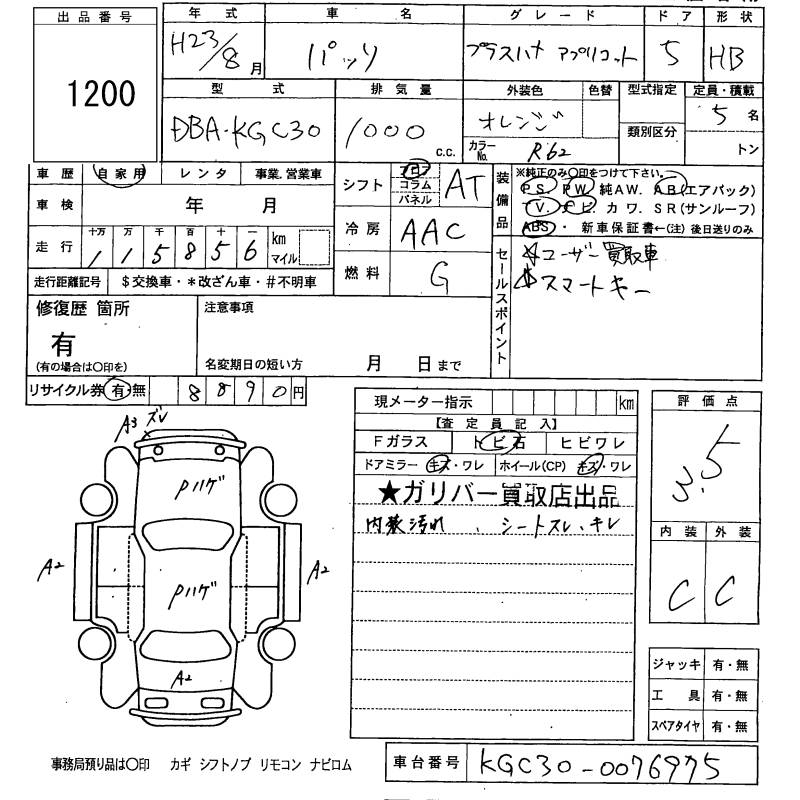 出品番号 年式 車名 グレード ドア 形状
1200 H23/8月 パッソ プラスハナ アプリコット 5 HB
型式 排気量 外装色 色替 型式指定 定員・積載
DBA-KGC30 1000 c.c. オレンジ 類別区分 5名
カラーNo. R62 トン
車歴 自家用 レンタ 事業、営業車
シフト フロア コラム パネル AT
装備品 ※純正のみ〇印をつけて下さい。
PS PW 純AW. AB(エアバック)
TV. ナビ. カワ. SR(サンルーフ)
ABS・ 新車保証書←(注) 後日送りのみ
車検 年 月
冷房 AAC
走行 十万 万 千 百 十 一 km マイル
1 1 5 8 5 6
燃料 G
走行距離記号 $交換車・*改ざん車・#不明車
セールスポイント ☆ユーザー買取車
☆スマートキー
修復歴 箇所 注意事項
有
(有の場合は〇印を) 名変期日の短い方 月 日まで
リサイクル券 有・無 8890円
現メーター指示 km
【査定員記入】
Fガラス トビ石 ヒビワレ
ドアミラー キズ・ワレ ホイール(CP) キズ・ワレ
★ガリバー買取店出品
内装汚れ、シートスレ、キレ
評価点
3.5
内装 外装
C C
A3 ズレ
Pハゲ
A2 Pハゲ A2
A2
ジャッキ 有・無
工具 有・無
スペアタイヤ 有・無
事務局預り品は〇印 カギ シフトノブ リモコン ナビロム
車台番号 KGC30-0076975